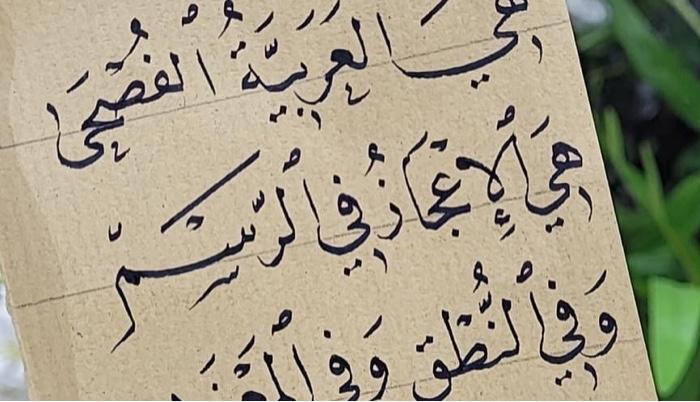 هِيَ الْعَرَبِيَّةُ الْفُصْحَىٰ
هِيَ الْإِعْجَازُ فِي الرَّسْمِ
وَفِي النُّطْقِ وَفِي الْمَعْنَى